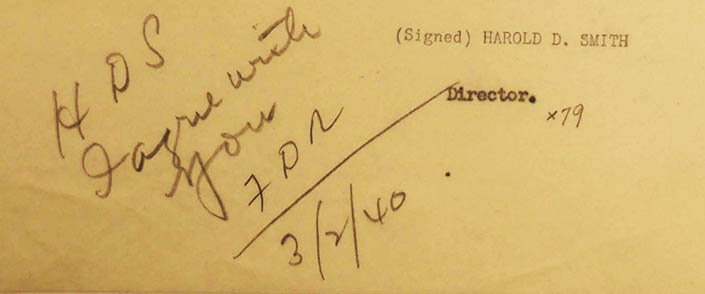 (Signed) HAROLD D. SMITH
Director.
x79
HDS
I agree with
you
FDR
3/2/40